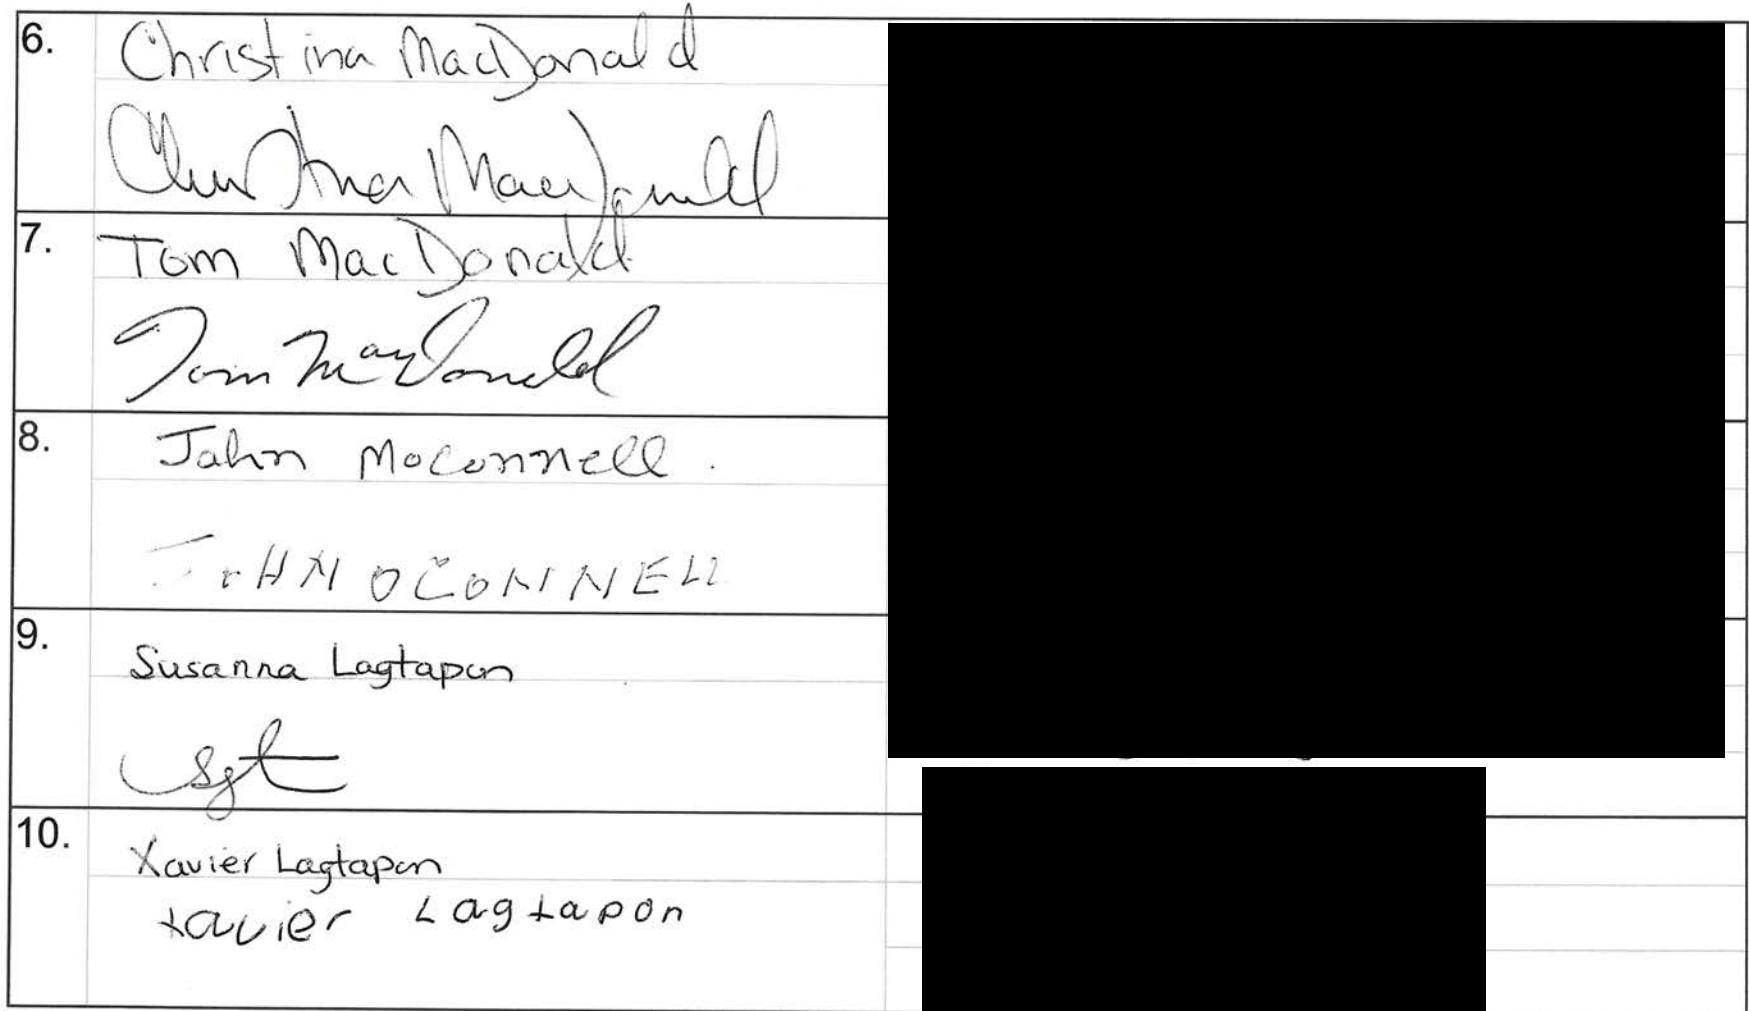 6.
Christina MacDonald
Christina MacDonald
7.
Tom MacDonald
Tom MacDonald
8.
John Moconnell.
JOHN OCONNELL
9.
Susanna Lagtapon
10.
Xavier Lagtapon
Xavier Lagtapon